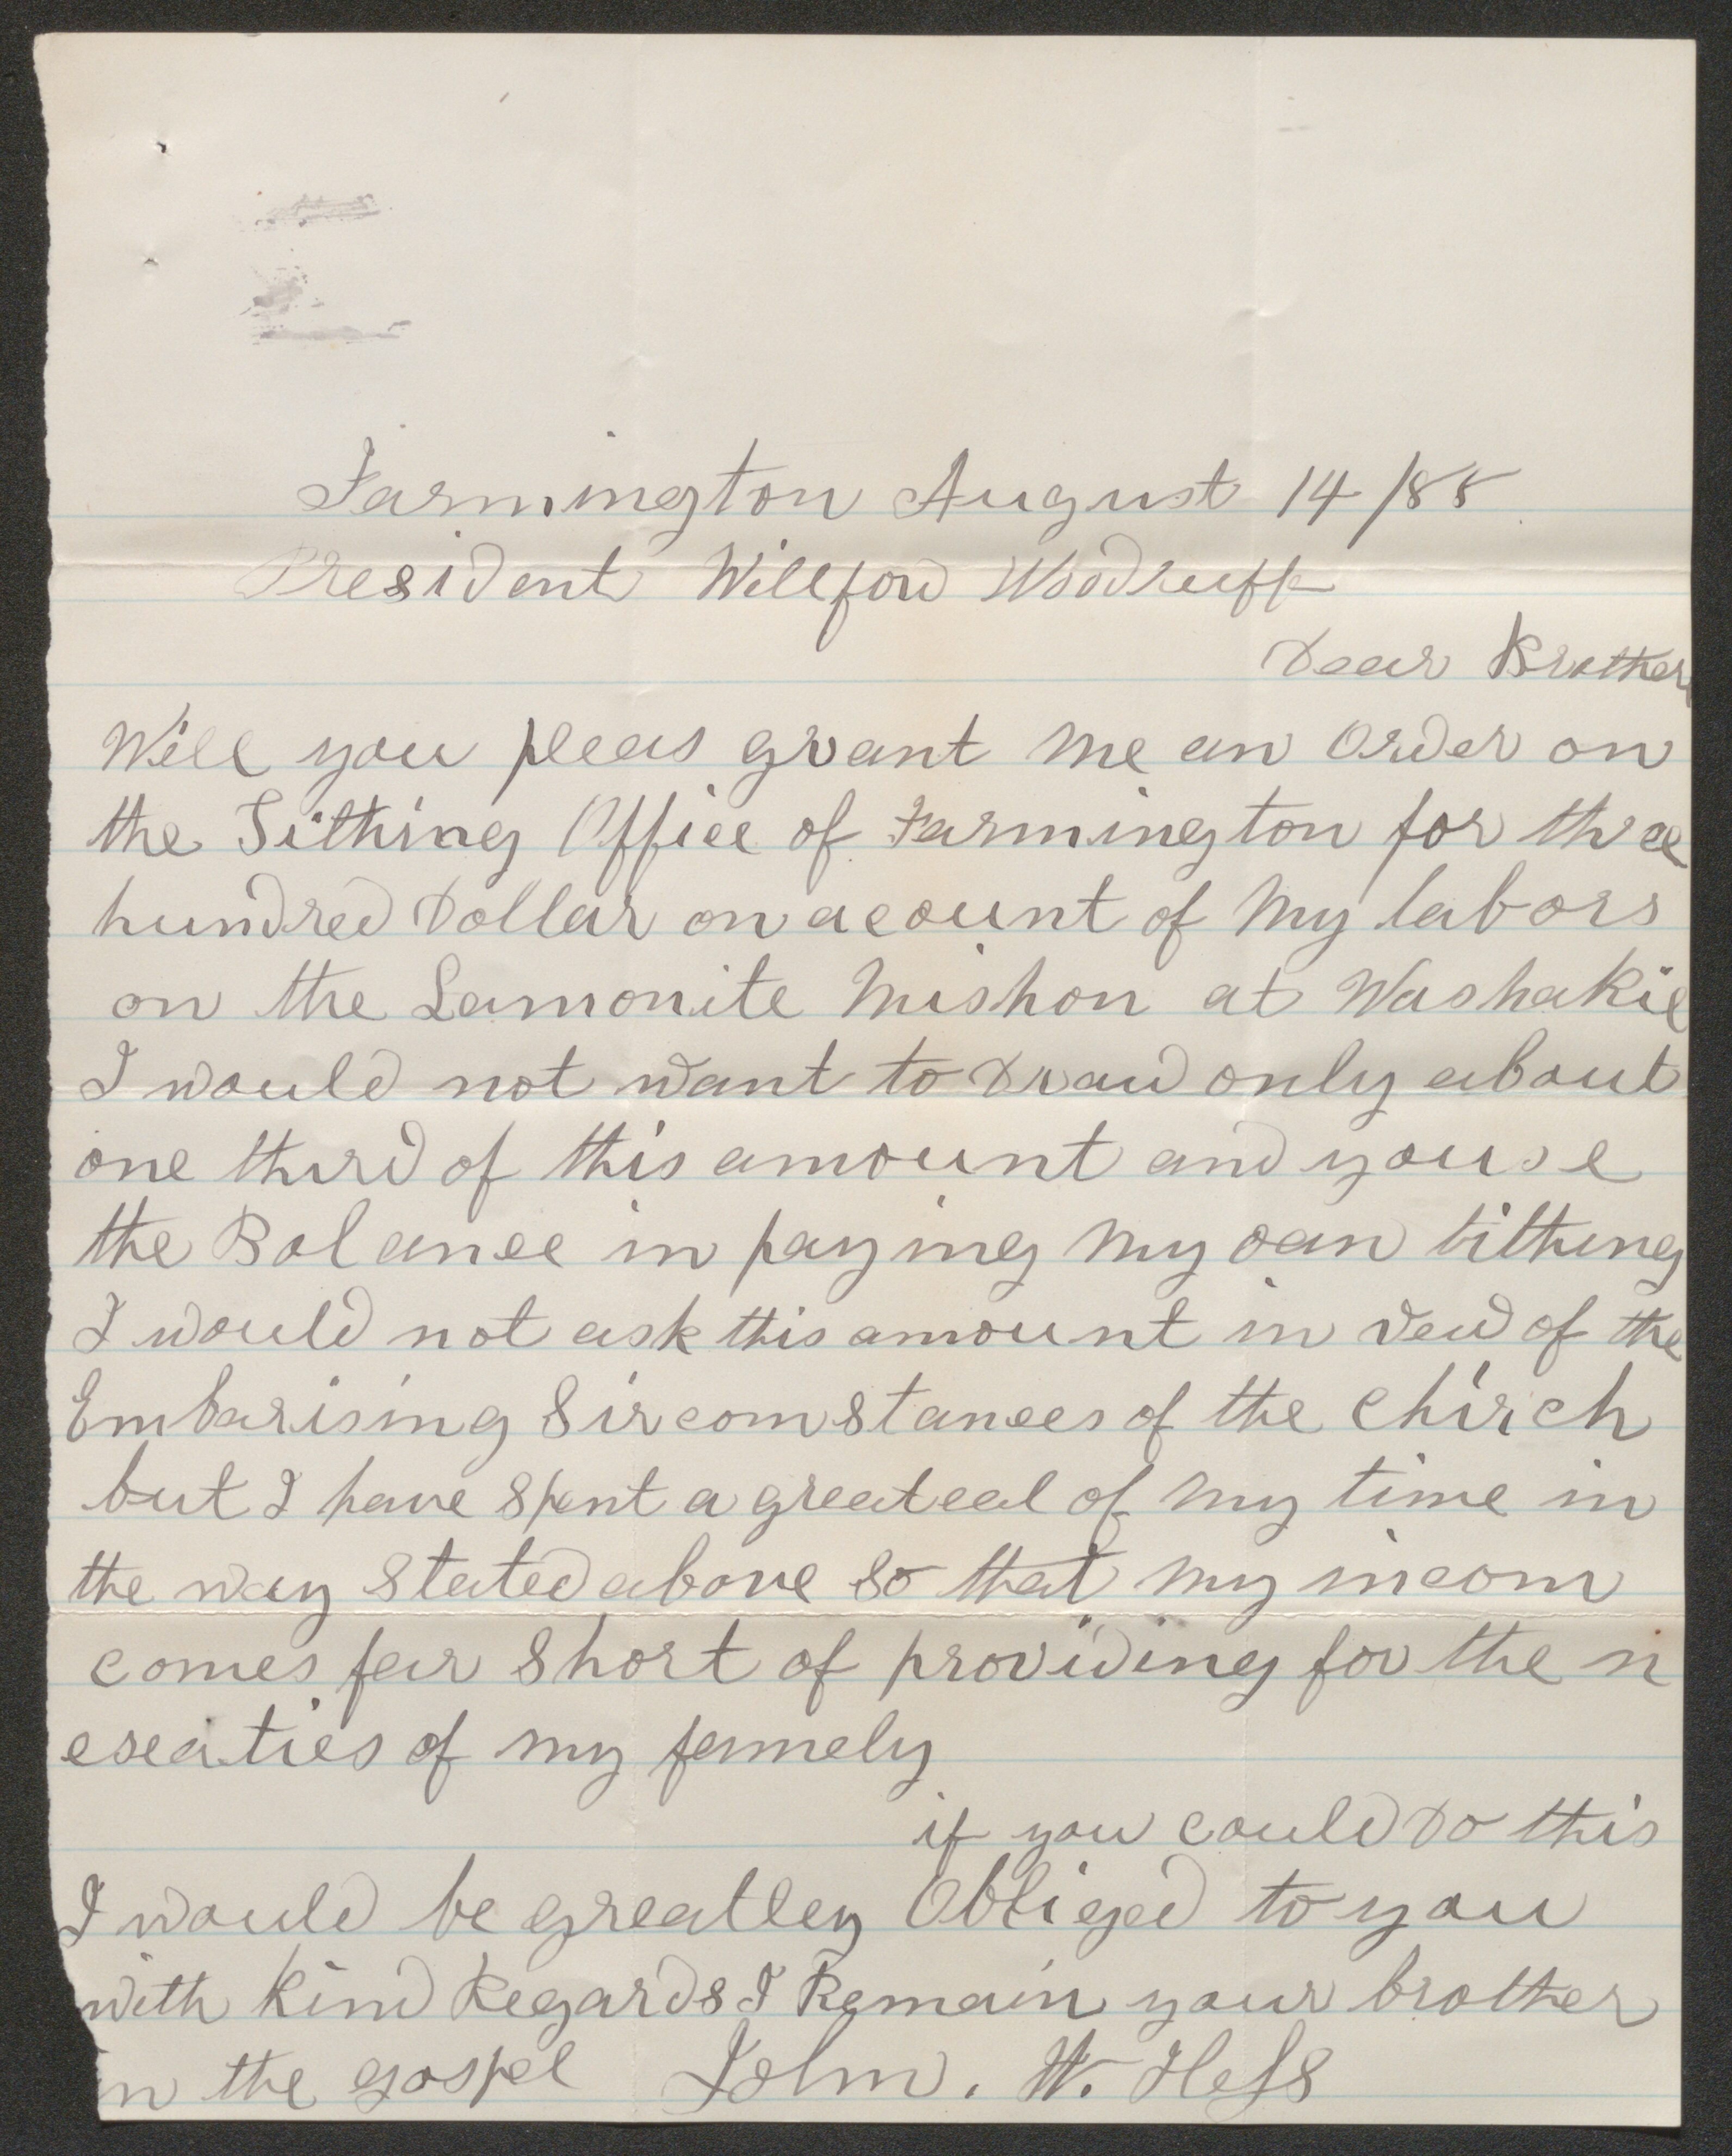 Farmington August 14/88
President Willford Woodruff
Dear Brother
Will you pleas grant me an Order on
the Tithing Office of Farmington for three
hundred Dollar on acount of My labors
on the Lamonite Mishon at Washakie
I would not want to Draw only about
one third of this amount and youse
the Balance in paying My oan tithing
I would not ask this amount in vew of the
Embarising Sircomstances of the Chirch
but I have Spent a greateal of My time in
the way Stated above So that My incom
comes far Short of providing for the n
eseaties of my famely
if you could Do this
I would be greatley Obliged to you
with Kind Regards I Remain your brother
in the gospel John. W. Hess